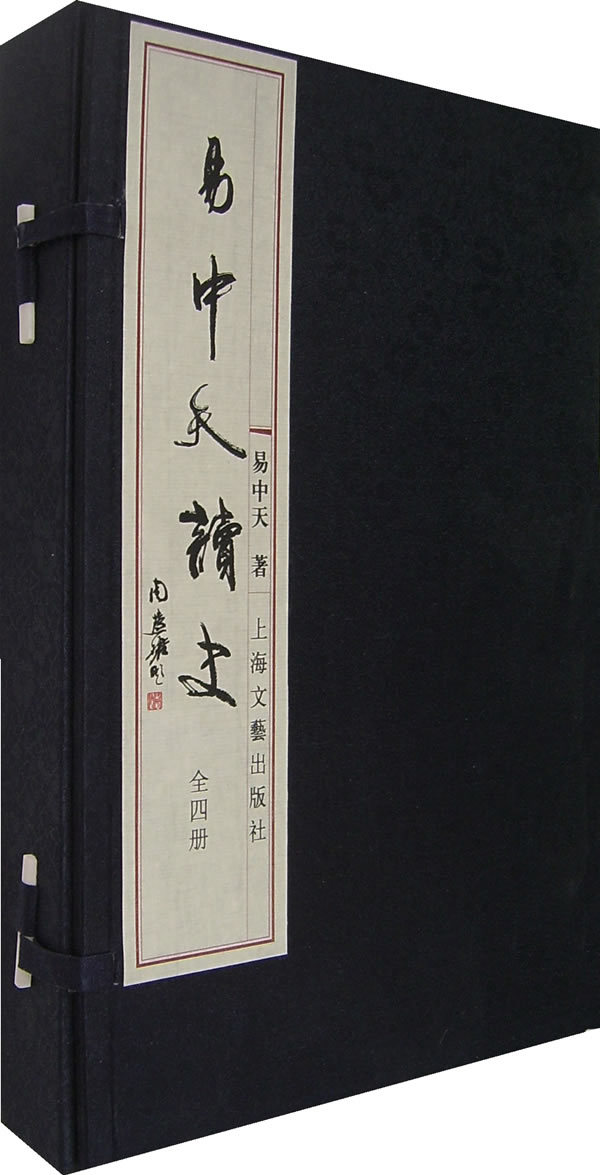 易中天讀史
易中天 著
上海文藝出版社
周慧珺題
全四册